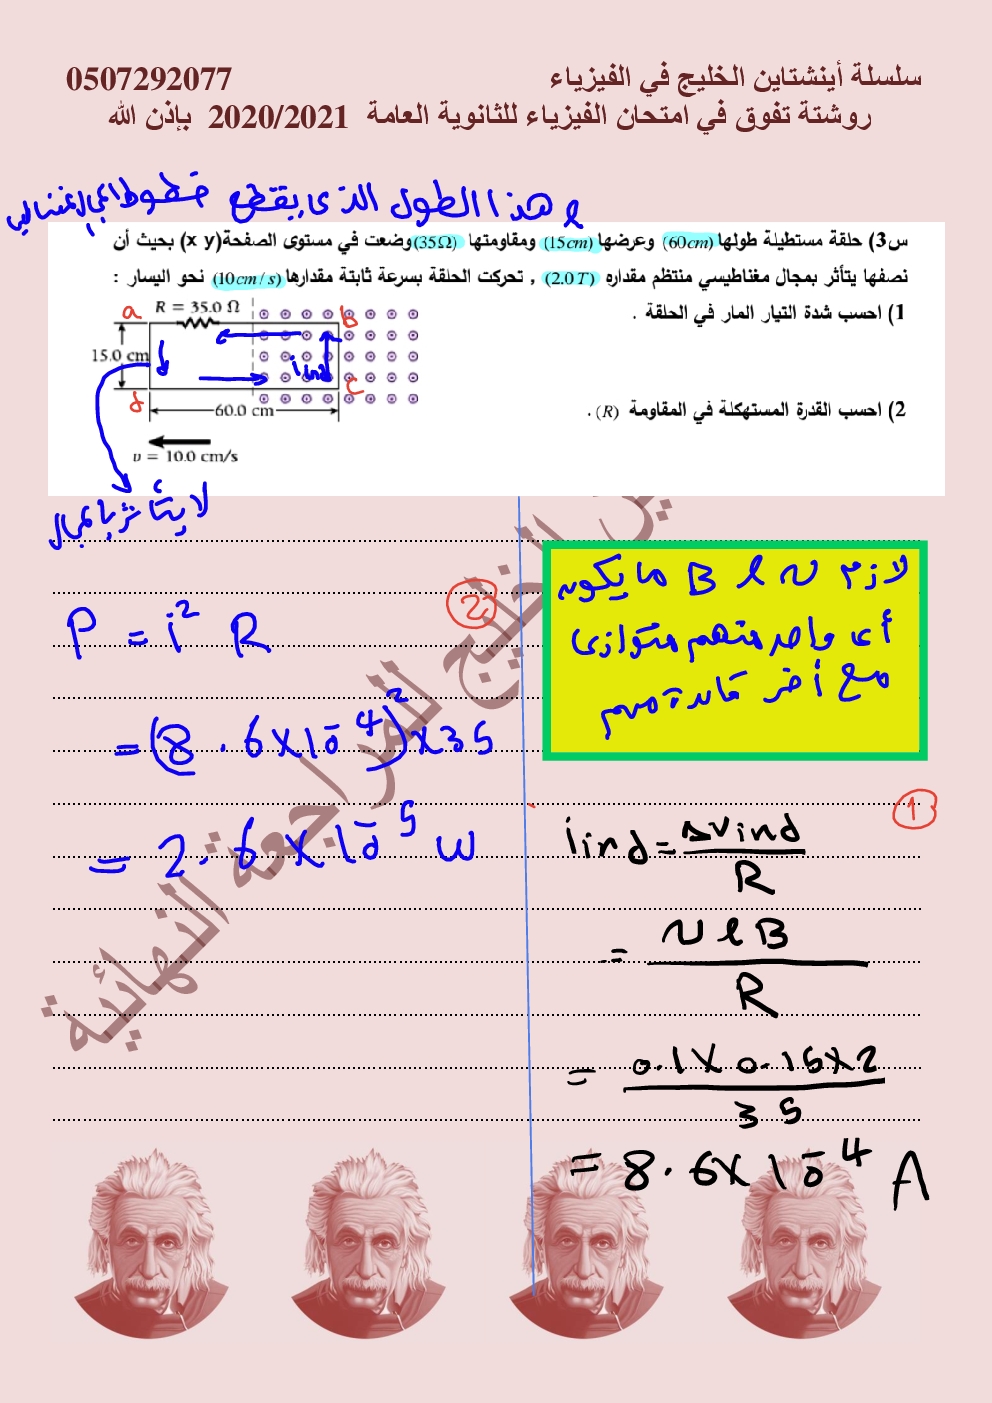 سلسلة أينشتاين الخليج في الفيزياء 0507292077
روشتة تفوق في امتحان الفيزياء للثانوية العامة 2020/2021 بإذن الله
l هذا الطول الذى يقطع خطوط المجال المغناطيسى
س3) حلقة مستطيلة طولها (60cm) وعرضها (15cm) ومقاومتها (35Ω) وضعت في مستوى الصفحة (x y) بحيث أن
نصفها يتأثر بمجال مغناطيسي منتظم مقداره (2.0T) , تحركت الحلقة بسرعة ثابتة مقدارها (10cm/s) نحو اليسار :
1) احسب شدة التيار المار في الحلقة .
2) احسب القدرة المستهلكة في المقاومة (R) .
a R = 35.0 Ω b
15.0 cm
i ind
d c
60.0 cm
υ = 10.0 cm/s
لا يتأثر بالمجال
لازم v l B ما يكون
أى واحد منهم متوازى
مع أخر قاعدة مهم
2
P = i² R
= (8.6 x 10⁻⁴)² x 35
= 2.6 x 10⁻⁵ w
1
i ind = ΔVind / R
= v l B / R
= 0.1 x 0.15 x 2 / 35
= 8.6 x 10⁻⁴ A
الخليج للمراجعة النهائية